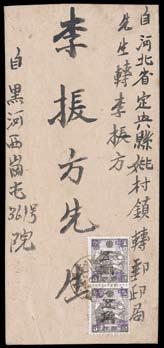 自河北省定興縣姚村鎮轉郵郵局
先生轉李振方
李振方先生
自黑河西崗屯361号
院